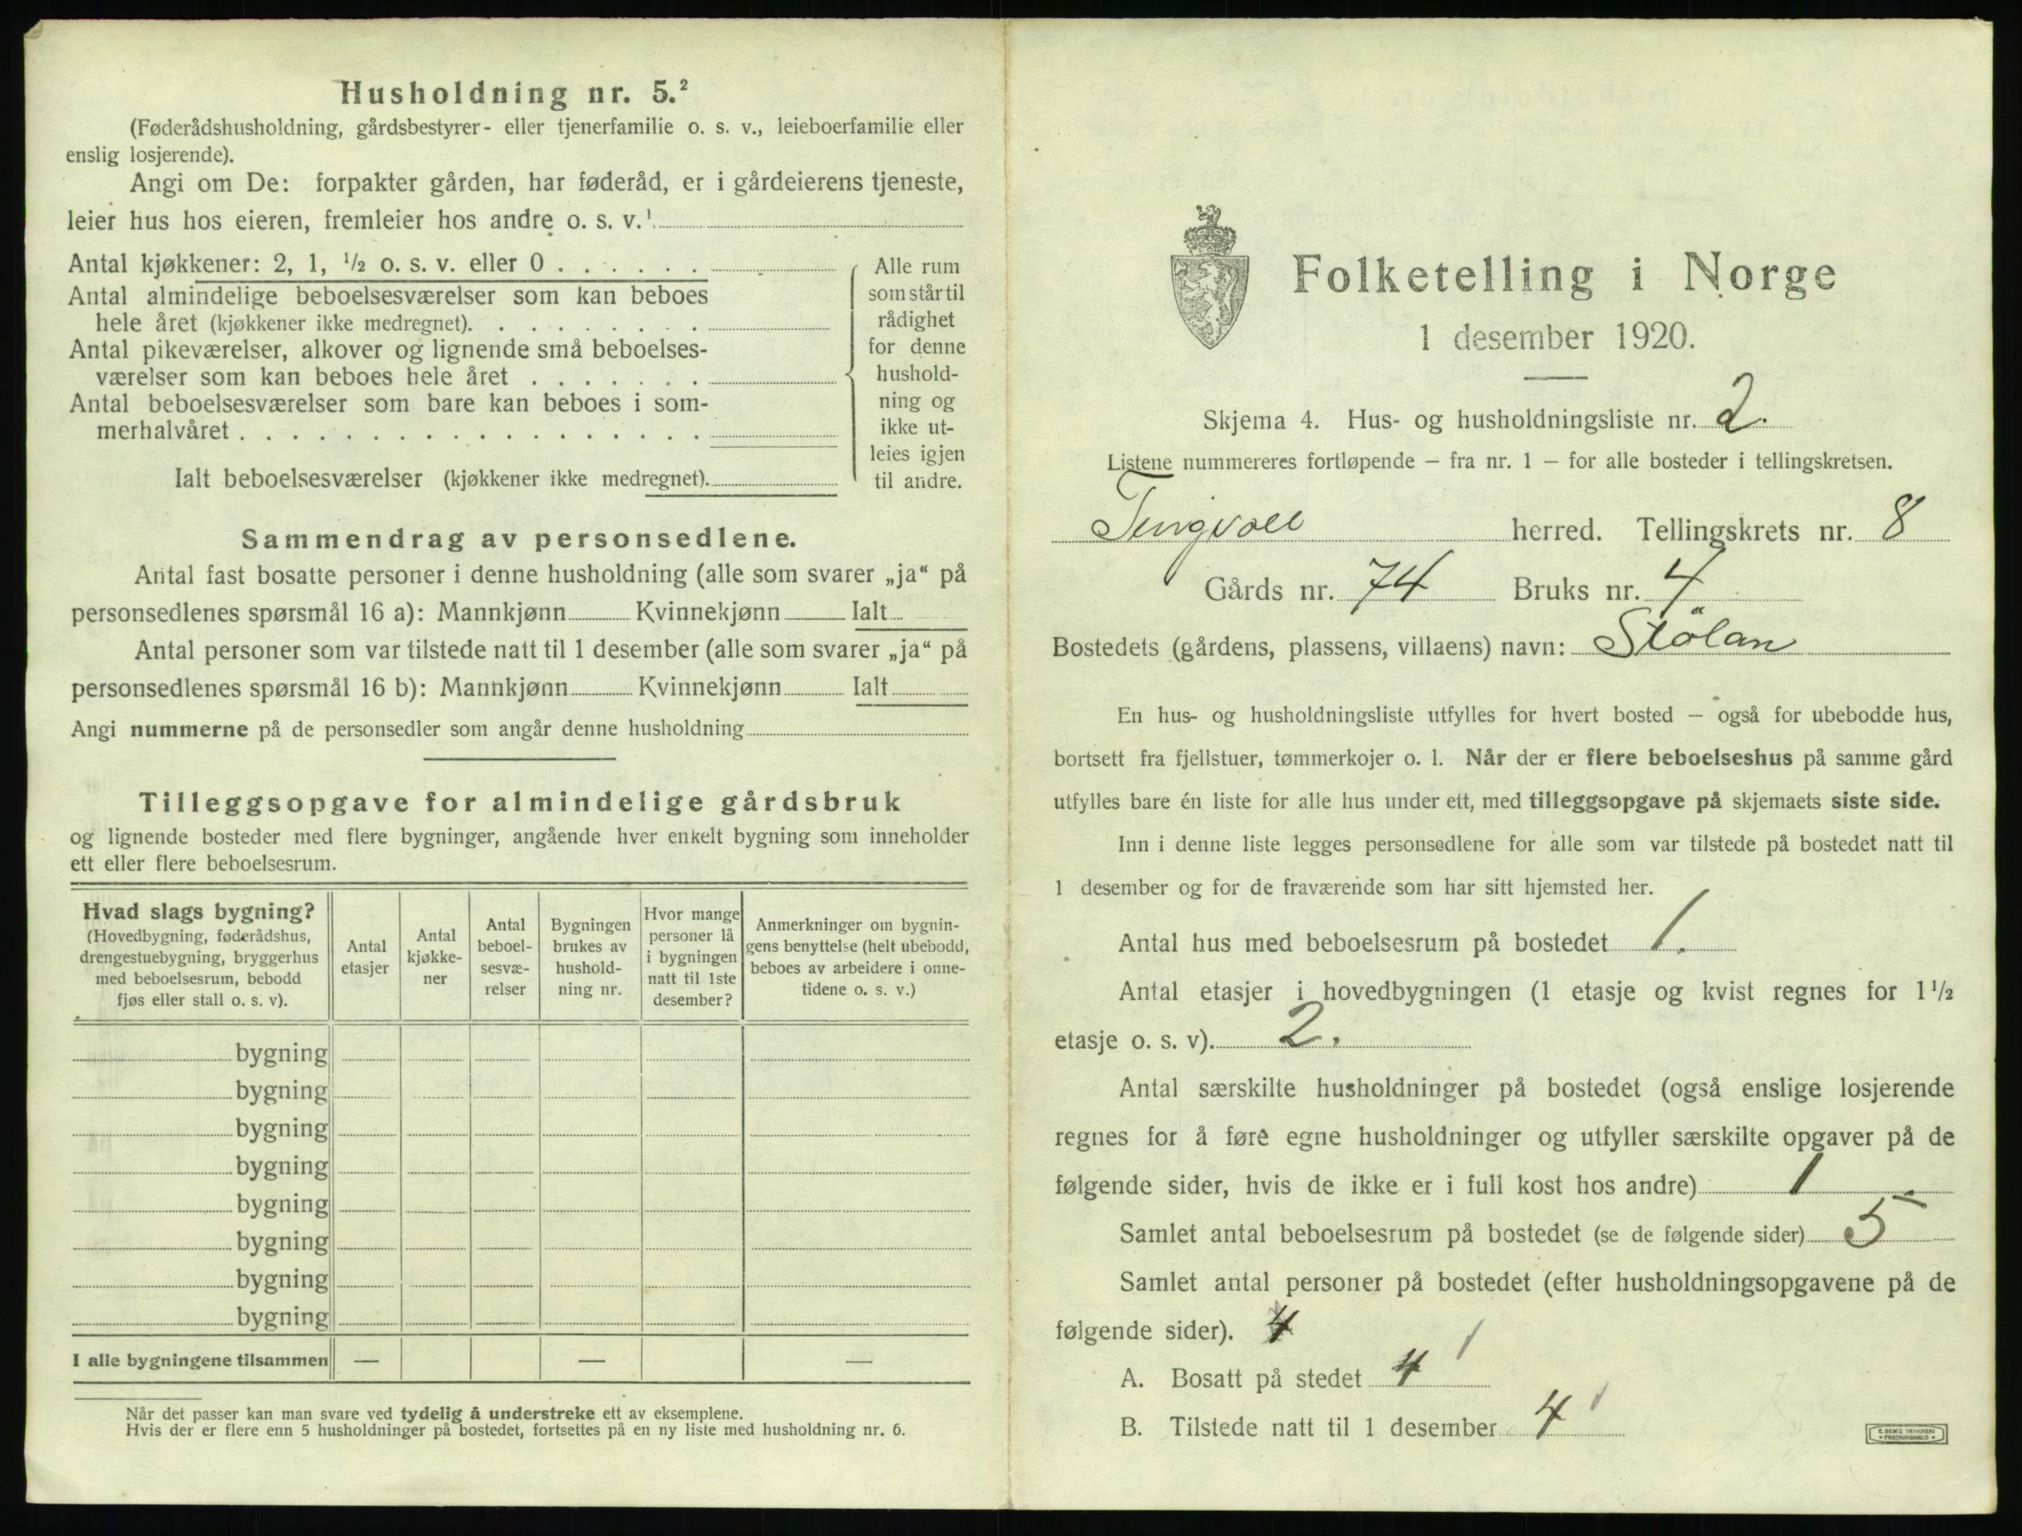 Husholdning nr. 5.²
(Føderådshusholdning, gårdsbestyrer- eller tjenerfamilie o. s. v., leieboerfamilie eller
enslig losjerende).
Angi om De: forpakter gården, har føderåd, er i gårdeierens tjeneste,
leier hus hos eieren, fremleier hos andre o. s. v.¹
Antal kjøkkener: 2, 1, ½ o. s. v. eller 0 . . . . . .
Antal almindelige beboelsesværelser som kan beboes
hele året (kjøkkener ikke medregnet). . . . . . . . .
Antal pikeværelser, alkover og lignende små beboelses-
værelser som kan beboes hele året . . . . . . .
Antal beboelsesværelser som bare kan beboes i som-
merhalvåret . . . . . . . . . . . . . . . . . .
Ialt beboelsesværelser (kjøkkener ikke medregnet).
Alle rum
som står til
rådighet
for denne
hushold-
ning og
ikke ut-
leies igjen
til andre.
Sammendrag av personsedlene.
Antal fast bosatte personer i denne husholdning (alle som svarer „ja“ på
personsedlenes spørsmål 16 a): Mannkjønn Kvinnekjønn Ialt
Antal personer som var tilstede natt til 1 desember (alle som svarer „ja“ på
personsedlenes spørsmål 16 b): Mannkjønn Kvinnekjønn Ialt
Angi nummerne på de personsedler som angår denne husholdning
Tilleggsopgave for almindelige gårdsbruk
og lignende bosteder med flere bygninger, angående hver enkelt bygning som inneholder
ett eller flere beboelsesrum.
Hvad slags bygning?
(Hovedbygning, føderådshus,
drengestuebygning, bryggerhus
med beboelsesrum, bebodd
fjøs eller stall o. s. v).
Antal
etasjer
Antal
kjøkke-
ner
Antal
beboel-
sesvæ-
relser
Bygningen
brukes av
hushold-
ning nr.
Hvor mange
personer lå
i bygningen
natt til 1ste
desember?
Anmerkninger om bygnin-
gens benyttelse (helt ubebodd,
beboes av arbeidere i onne-
tidene o. s. v.)
bygning
bygning
bygning
bygning
bygning
bygning
bygning
bygning
I alle bygningene tilsammen — — —
Når det passer kan man svare ved tydelig å understreke ett av eksemplene.
Hvis der er flere enn 5 husholdninger på bostedet, fortsettes på en ny liste med husholdning nr. 6.
Folketelling i Norge
1 desember 1920.
Skjema 4. Hus- og husholdningsliste nr. 2.
Listene nummereres fortløpende – fra nr. 1 – for alle bosteder i tellingskretsen.
Tingvoll herred. Tellingskrets nr. 8
Gårds nr. 74 Bruks nr. 4
Bostedets (gårdens, plassens, villaens) navn: Stölan
En hus- og husholdningsliste utfylles for hvert bosted – også for ubebodde hus,
bortsett fra fjellstuer, tømmerkojer o. l. Når der er flere beboelseshus på samme gård
utfylles bare én liste for alle hus under ett, med tilleggsopgave på skjemaets siste side.
Inn i denne liste legges personsedlene for alle som var tilstede på bostedet natt til
1 desember og for de fraværende som har sitt hjemsted her.
Antal hus med beboelsesrum på bostedet 1.
Antal etasjer i hovedbygningen (1 etasje og kvist regnes for 1½
etasje o. s. v). 2.
Antal særskilte husholdninger på bostedet (også enslige losjerende
regnes for å føre egne husholdninger og utfyller særskilte opgaver på de
følgende sider, hvis de ikke er i full kost hos andre) 1
Samlet antal beboelsesrum på bostedet (se de følgende sider) 5
Samlet antal personer på bostedet (efter husholdningsopgavene på de
følgende sider). 4
A. Bosatt på stedet 4 1
B. Tilstede natt til 1 desember 4 1
E. SEM'S TRYKKERI
FREDRIKSHALD